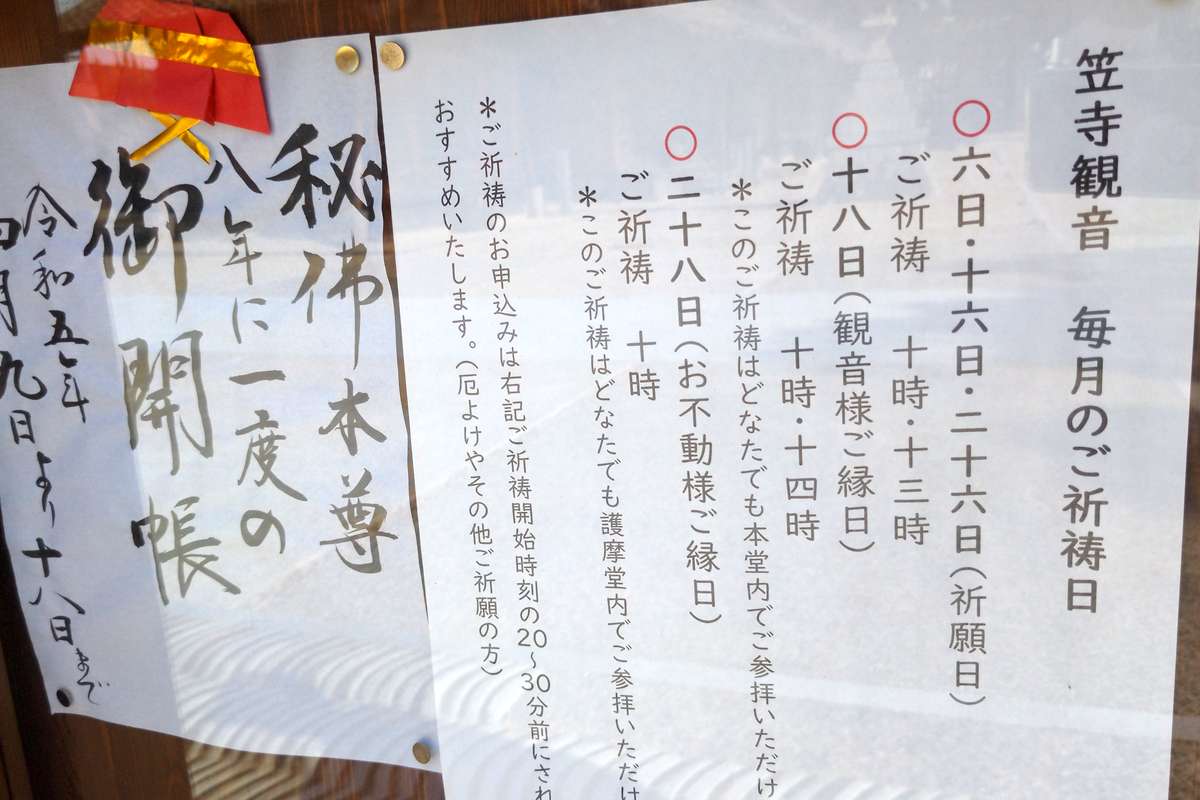 笠寺観音　毎月のご祈祷日
〇六日・十六日・二十六日(祈願日)
ご祈祷　十時・十三時
〇十八日(観音様ご縁日)
ご祈祷　十時・十四時
＊このご祈祷はどなたでも本堂内でご参拝いただけ
〇二十八日(お不動様ご縁日)
ご祈祷　十時
＊このご祈祷はどなたでも護摩堂内でご参拝いただけ
＊ご祈祷のお申込みは右記ご祈祷開始時刻の20～30分前にされ
おすすめいたします。(厄よけやその他ご祈願の方)
秘佛本尊
八年に一度の
御開帳
令和五年
四月九日より十八日まで